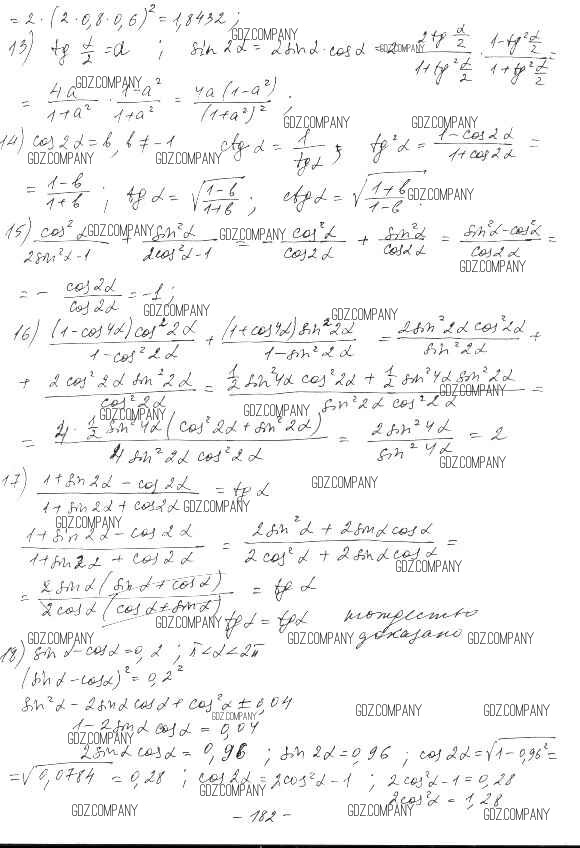 = 2 · (2 · 0,8 · 0,6)² = 1,8432 ;
13) tg α/2 = a ; sin 2α = 2 sin α · cos α = 2 · (2 tg α/2)/(1 + tg² α/2) · (1 - tg² α/2)/(1 + tg² α/2) =
= 4a/(1+a²) · (1-a²)/(1+a²) = 4a(1-a²)/(1+a²)² ;
14) cos 2α = b, b ≠ -1 ctg α = 1/tg α ; tg² α = (1 - cos 2α)/(1 + cos 2α) =
= (1-b)/(1+b) ; tg α = √((1-b)/(1+b)) ; ctg α = √((1+b)/(1-b)) ;
15) cos² α/(2 sin² α - 1) + sin² α/(2 cos² α - 1) = - cos² α/cos 2α + sin² α/cos 2α = (sin² α - cos² α)/cos 2α =
= - cos 2α/cos 2α = -1 ;
16) (1 - cos 4α) cos² 2α/(1 - cos² 2α) + (1 + cos 4α) sin² 2α/(1 - sin² 2α) = 2 sin² 2α cos² 2α/sin² 2α +
+ 2 cos² 2α sin² 2α/cos² 2α = (½ sin² 4α cos² 2α + ½ sin² 4α sin² 2α)/(sin² 2α cos² 2α) =
= 4 · ½ sin² 4α (cos² 2α + sin² 2α)/(4 sin² 2α cos² 2α) = 2 sin² 4α/sin² 4α = 2
17) (1 + sin 2α - cos 2α)/(1 + sin 2α + cos 2α) = tg α
(1 + sin 2α - cos 2α)/(1 + sin 2α + cos 2α) = (2 sin² α + 2 sin α cos α)/(2 cos² α + 2 sin α cos α) =
= 2 sin α (sin α + cos α)/(2 cos α (cos α + sin α)) = tg α
tg α = tg α тождество
доказано
18) sin α - cos α = 0,2 ; π < α < 2π
(sin α - cos α)² = 0,2²
sin² α - 2 sin α cos α + cos² α = 0,04
1 - 2 sin α cos α = 0,04
2 sin α cos α = 0,96 ; sin 2α = 0,96 ; cos 2α = √(1 - 0,96²) =
= √0,0784 = 0,28 ; cos 2α = 2 cos² α - 1 ; 2 cos² α - 1 = 0,28
2 cos² α = 1,28
- 182 -
GDZ.COMPANY